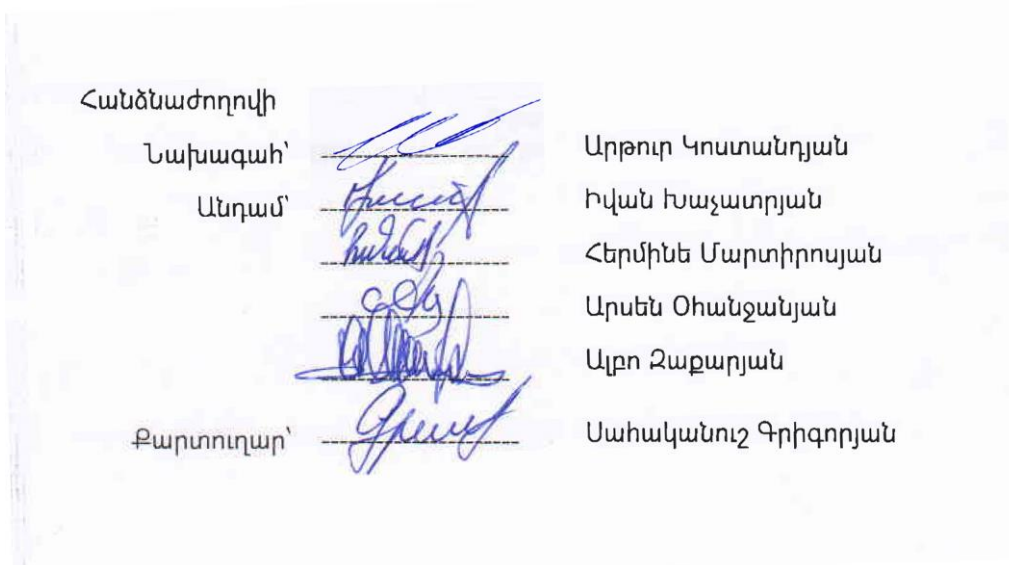 Հանձնաժողովի
Նախագահ՝ Արթուր Կոստանդյան
Անդամ՝ Իվան Խաչատրյան
Հերմինե Մարտիրոսյան
Արսեն Օհանջանյան
Ալբո Զաքարյան
Քարտուղար՝ Սահականուշ Գրիգորյան